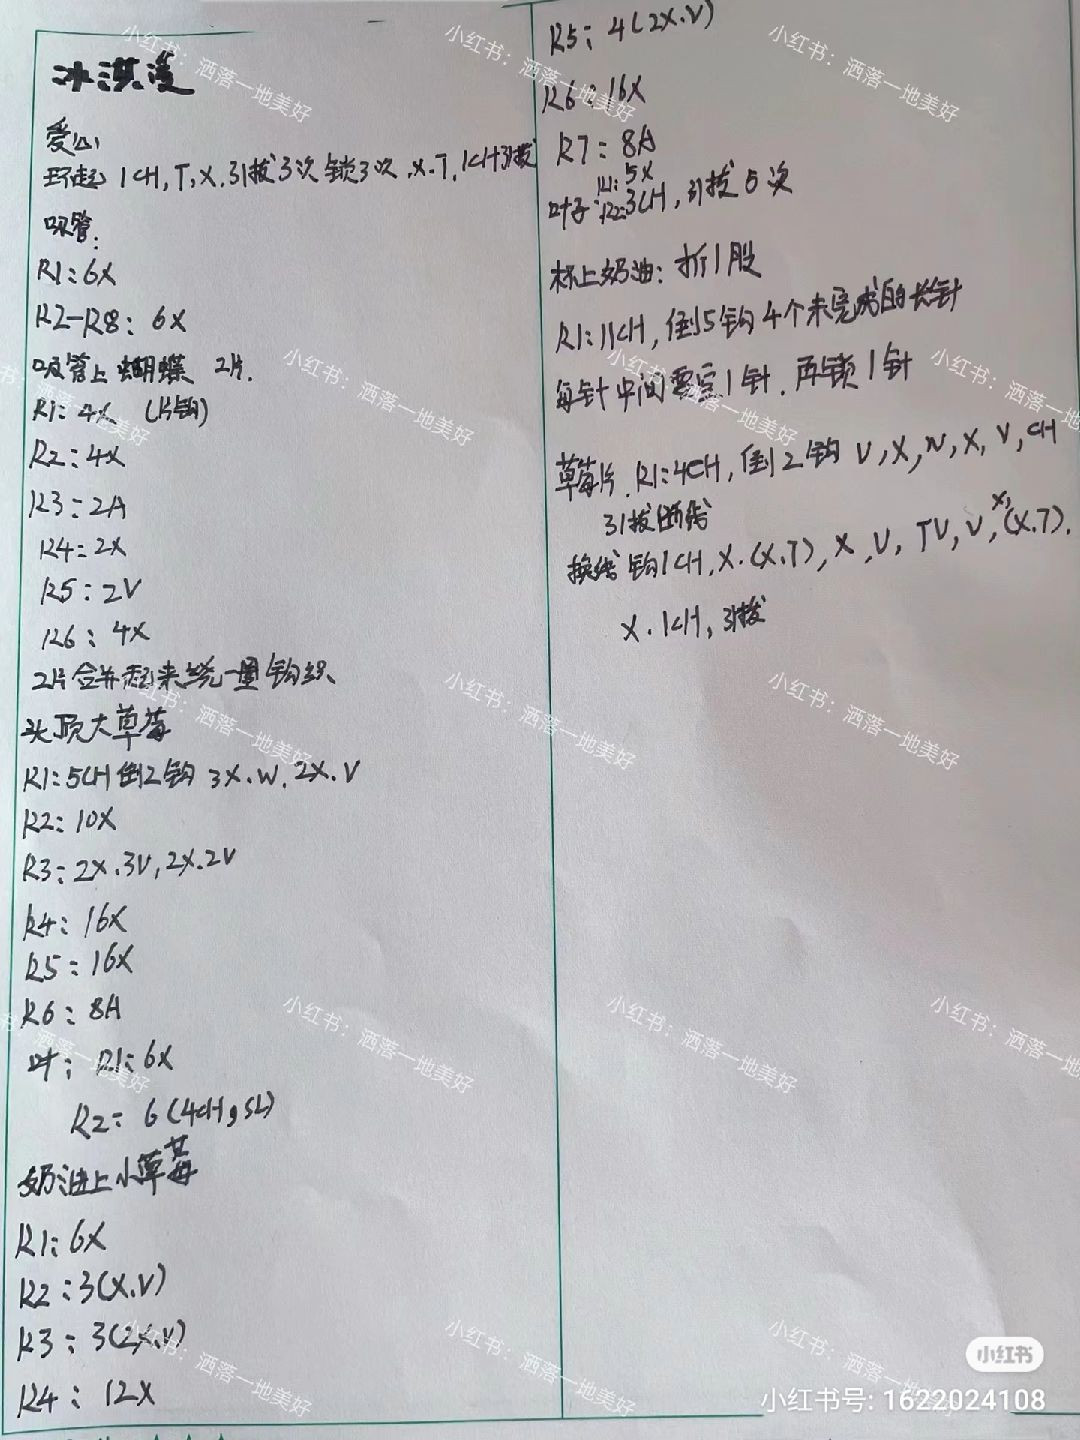 冰淇淩
爱心
环起 1CH, T, X, 引拔3次 锁3次, X. T, 1CH引拔
吸管:
R1: 6X
R2-R8: 6X
吸管上蝴蝶 2片.
R1: 4X (片钩)
R2: 4X
R3: 2A
R4: 2X
R5: 2V
R6: 4X
2片合并起来绕一圈钩织
头顶大草莓
R1: 5CH倒2钩 3X. W. 2X. V
R2: 10X
R3: 2X. 3V, 2X. 2V
R4: 16X
R5: 16X
R6: 8A
叶: R1: 6X
R2: 6(4CH, SL)
奶油上小草莓
R1: 6X
R2: 3(X. V)
R3: 3(2X. V)
R4: 12X
R5: 4(2X. V)
R6: 16X
R7: 8A
叶子: R1: 5X
R2: 3CH, 引拔5次
杯上奶油: 折1股
R1: 11CH, 倒5钩4个未完成的长针
每针中间需空1针. 再锁1针
草莓片. R1: 4CH, 倒2钩 V, X, W, X, V, CH
引拔断线
换线钩1CH, X. (X, T), X, V, TV, V, X, (X. T).
X. 1CH, 引拔
小红书
小红书号: 1622024108
小红书: 洒落一地美好